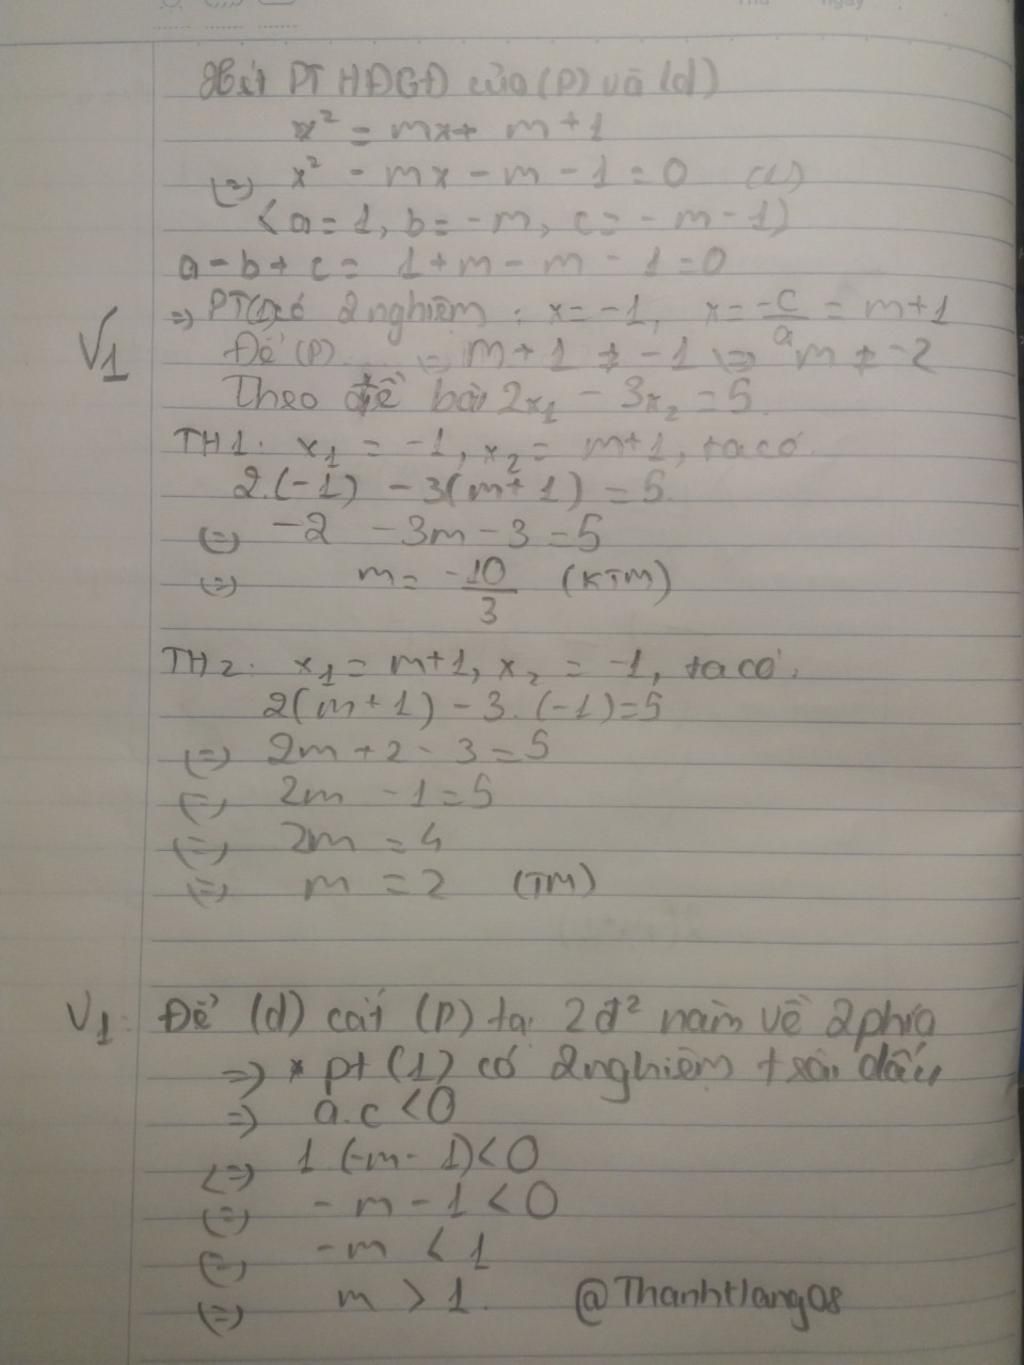 Xét PT HĐGĐ của (P) và (d)
x² = mx + m + 1
(=) x² - mx - m - 1 = 0 (1)
(a = 1, b = -m, c = - m - 1)
a - b + c = 1 + m - m - 1 = 0
=) PT(1) có 2 nghiệm : x = -1, x = -c/a = m+1
V1
Để (P) =) m + 1 ≠ -1 =) m ≠ -2
Theo đề bài 2x₁ - 3x₂ = 5
TH1: x₁ = -1, x₂ = m+1, ta có
2.(-1) - 3(m+1) = 5
(=) -2 - 3m - 3 = 5
(=) m = -10/3 (KTM)
TH2: x₁ = m+1, x₂ = -1, ta có.
2(m+1) - 3.(-1) = 5
(=) 2m + 2 - 3 = 5
(=) 2m - 1 = 5
(=) 2m = 4
(=) m = 2 (TM)
V1: Để (d) cắt (P) tại 2đ² nằm về 2 phía
=) * pt (1) có 2 nghiệm trái dấu
=) a.c < 0
<=) 1 (-m - 1) < 0
(=) - m - 1 < 0
(=) - m < 1
(=) m > 1. @Thanhtlang08